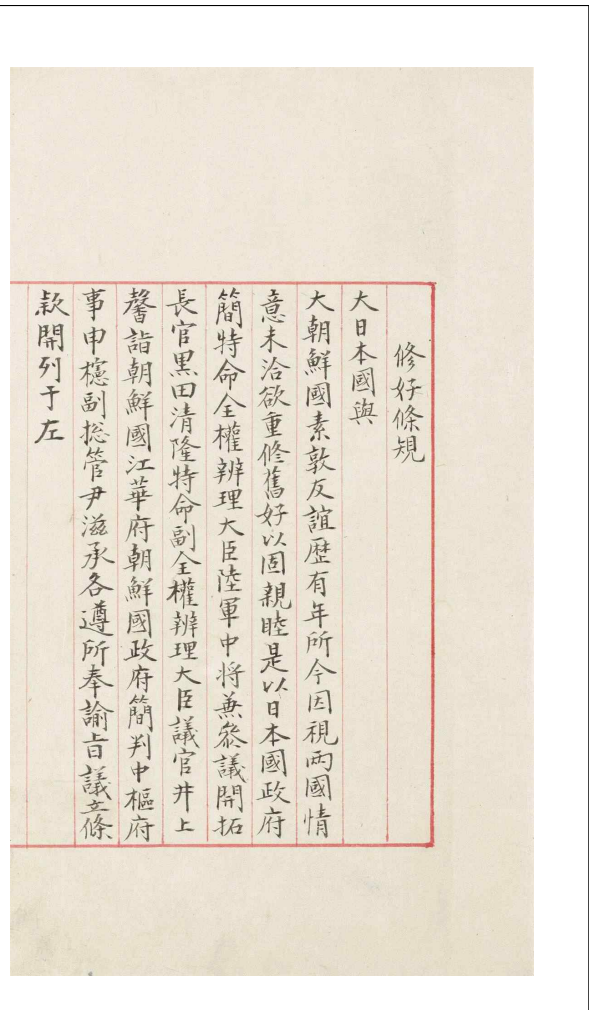 修好條規
大日本國與
大朝鮮國素敦友誼歷有年所今因視兩國情
意未洽欲重修舊好以固親睦是以日本國政府
簡特命全權辨理大臣陸軍中将兼叅議開拓
長官黒田清隆特命副全權辨理大臣議官井上
馨詣朝鮮國江華府朝鮮國政府簡判中樞府
事申櫶副捴管尹滋承各遵所奉諭旨議立條
款開列于左